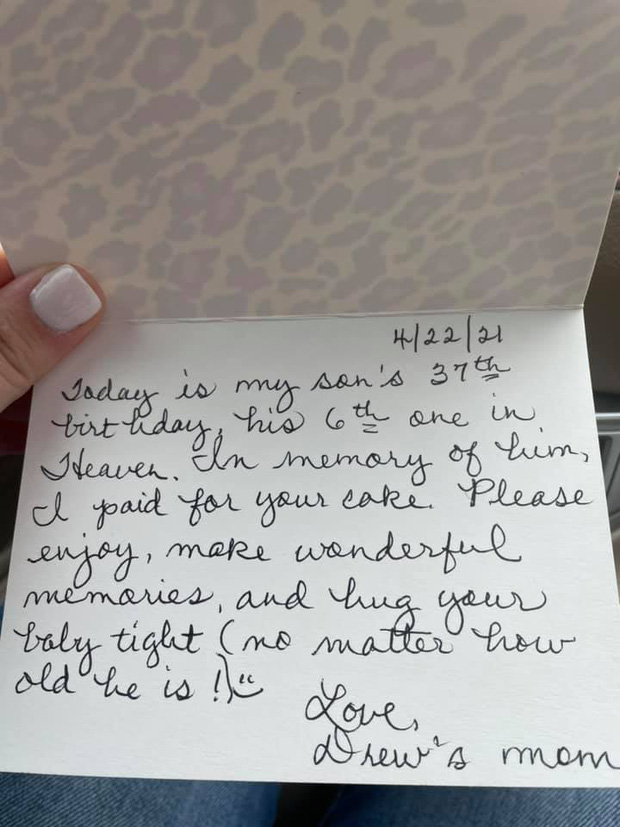 4/22/21
Today is my son's 37th
birthday, his 6th one in
Heaven. In memory of him,
I paid for your cake. Please
enjoy, make wonderful
memories, and hug your
baby tight (no matter how
old he is!) :)
Love,
Drew's mom